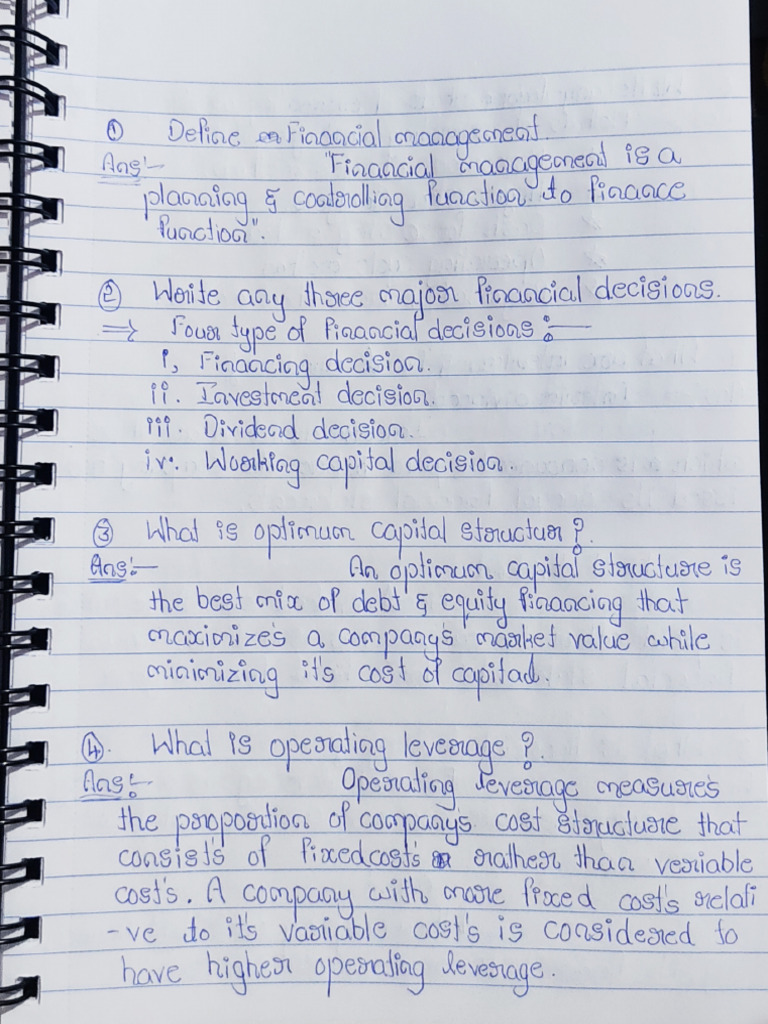 ① Define Financial management
Ans:- "Financial management is a
planning & controlling function to finance
function".
② Write any three major financial decisions.
⇒ Four type of financial decisions :-
i, Financing decision.
ii. Investment decision.
iii. Dividend decision.
iv. Working capital decision.
③ What is optimum capital structur ?
Ans:- An optimum capital structure is
the best mix of debt & equity financing that
maximize's a company's market value while
minimizing it's cost of capital.
④. What is operating leverage ?
Ans:- Operating leverage measure's
the proportion of company's cost structure that
consist's of fixed cost's rather than veriable
cost's. A company with more fixed cost's relati
-ve to it's variable cost's is considered to
have higher operating leverage.